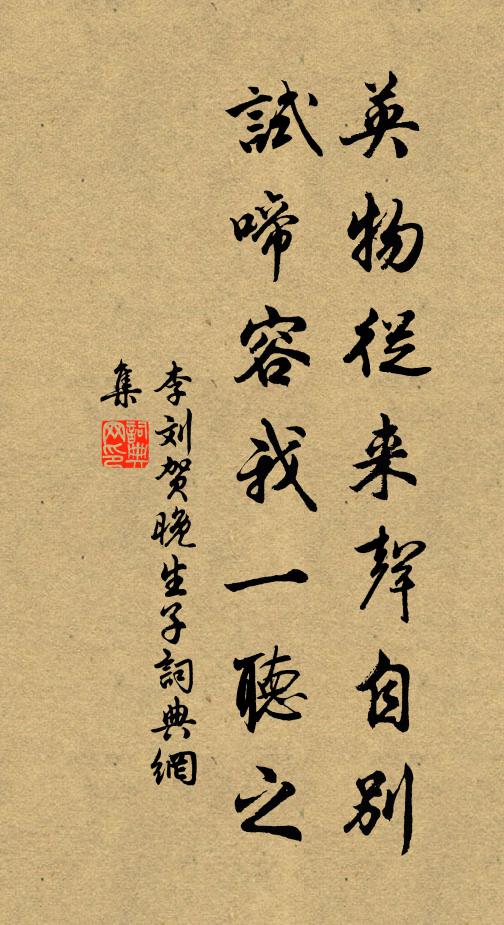 英物從来聲自別
試啼容我一聽之
李刘賀晚生子詞典網
集
詞典
网印